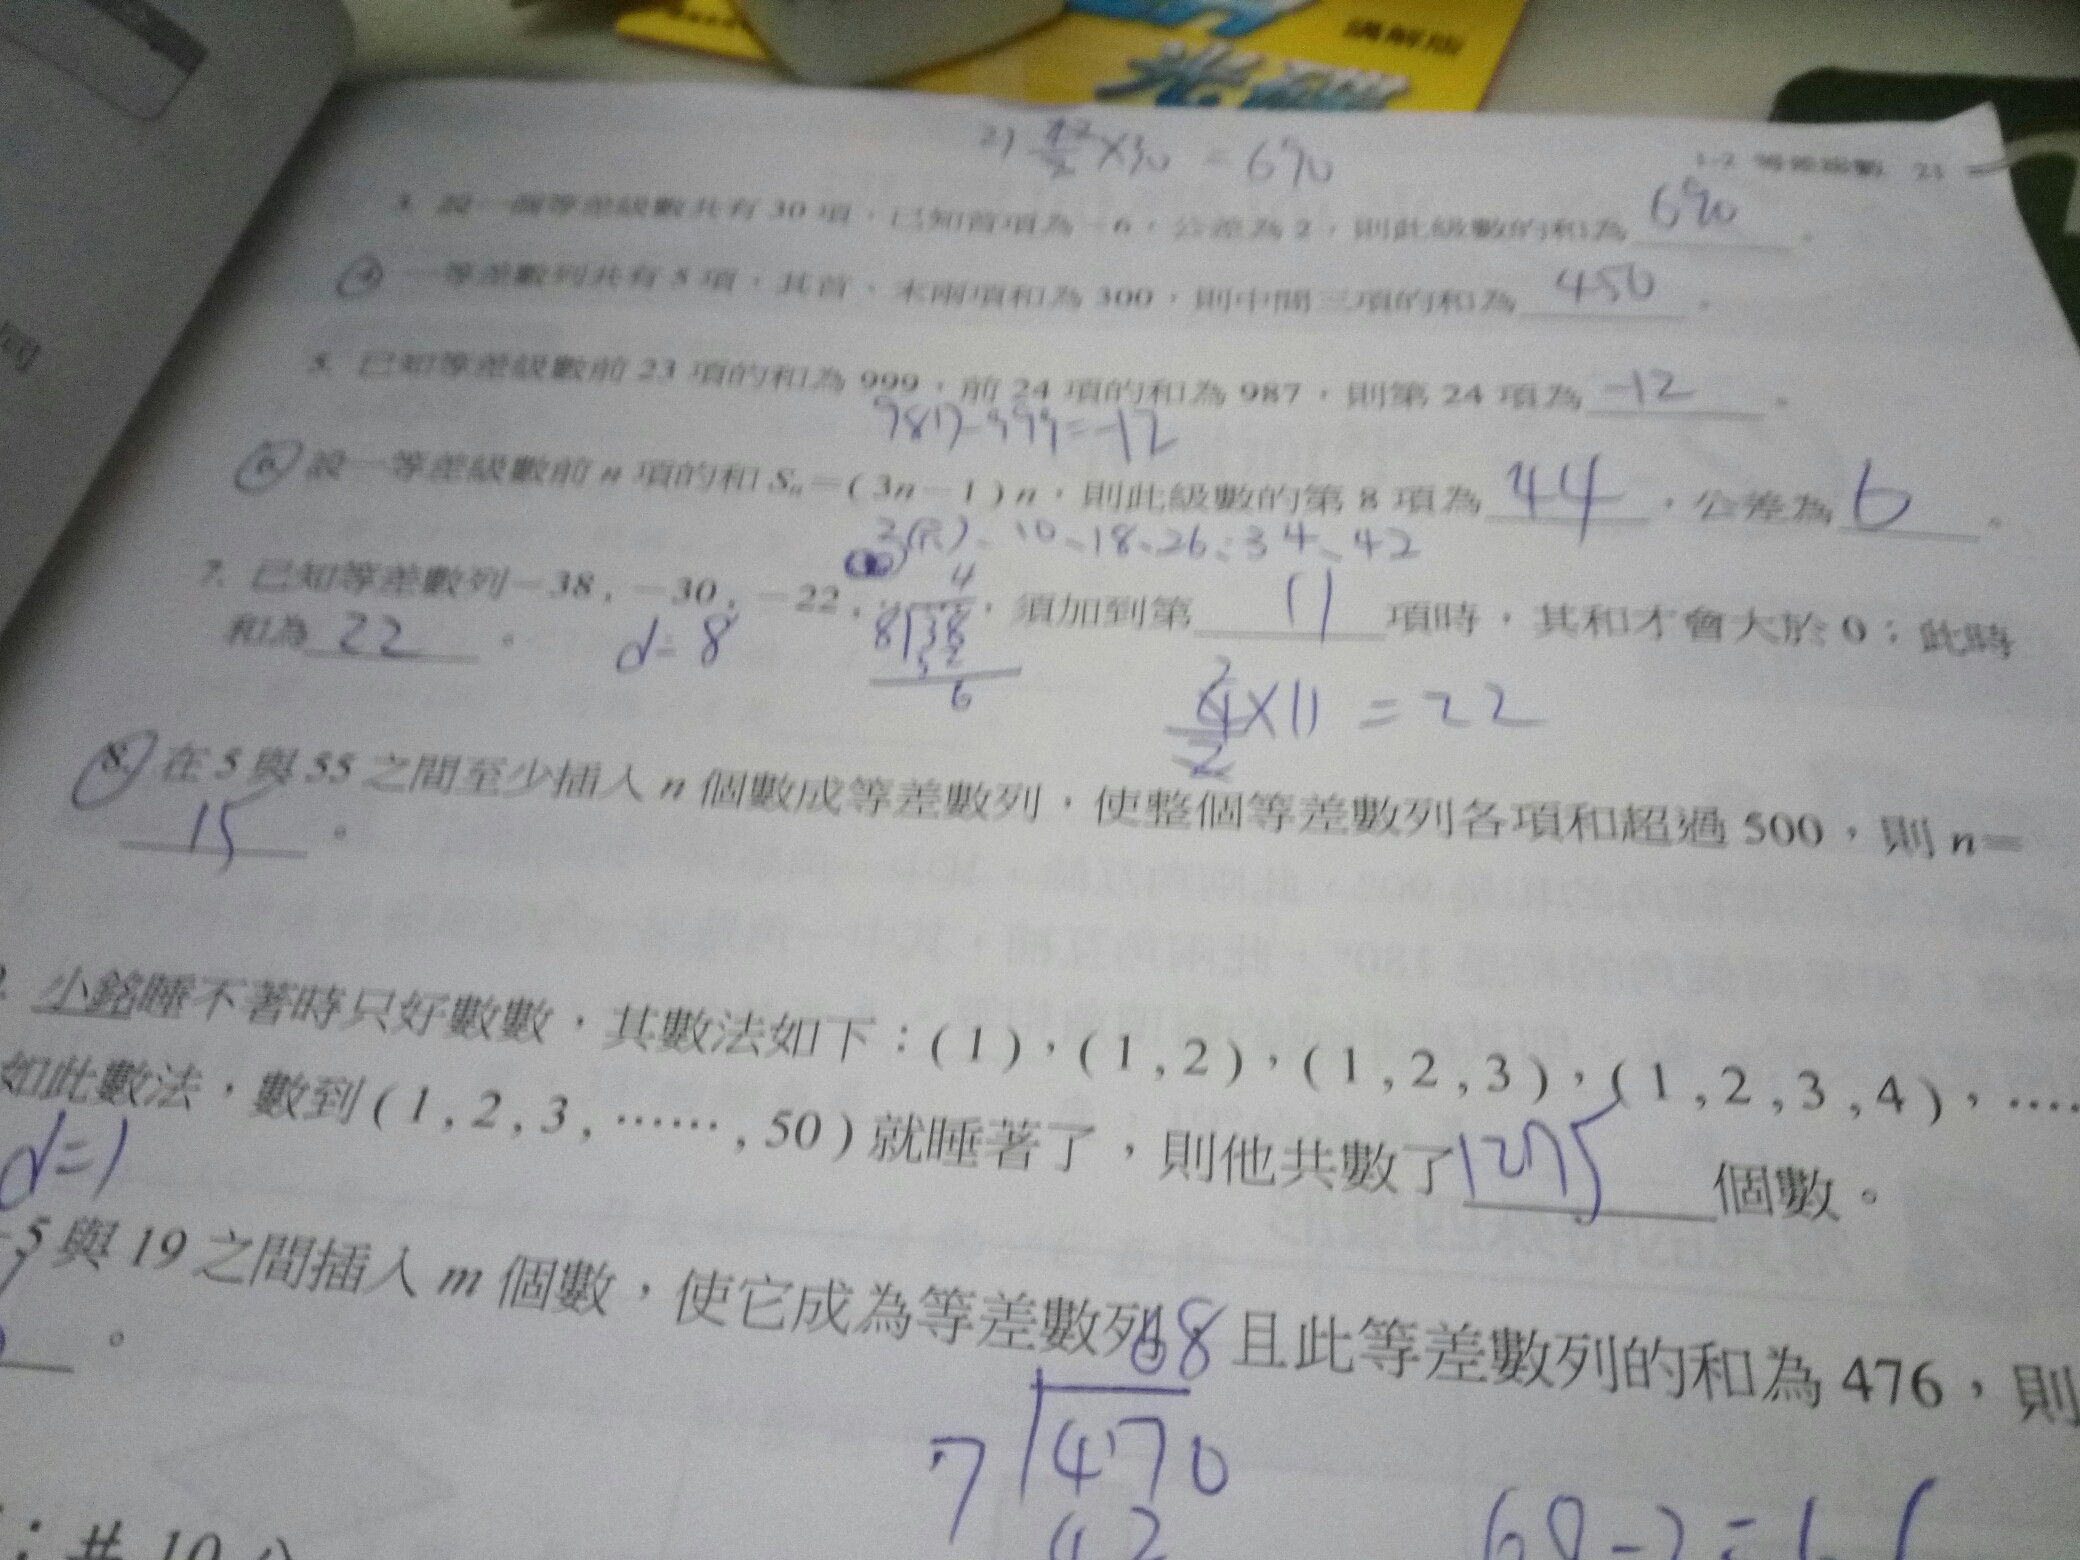 講解版
2) 42/2 ×30 = 690
1-2 等差級數 23
3. 設一個等差級數共有 30 項，已知首項為 -6，公差為 2，則此級數的和為 690 。
4. 一等差數列共有 5 項，其首、末兩項和為 300，則中間三項的和為 450 。
5. 已知等差級數前 23 項的和為 999，前 24 項的和為 987，則第 24 項為 -12 。
987-999=-12
6. 設一等差級數前 n 項的和 Sn=(3n-1)n，則此級數的第 8 項為 44 ，公差為 6 。
10、18、26、34、42
7. 已知等差數列-38，-30，-22，……，須加到第 11 項時，其和才會大於 0；此時
和為 22 。
d=8
4
8 38
32
6
4/2 ×11 = 22
8. 在 5 與 55 之間至少插入 n 個數成等差數列，使整個等差數列各項和超過 500，則 n=
15 。
小銘睡不著時只好數數，其數法如下：(1)，(1,2)，(1,2,3)，(1,2,3,4)，….
如此數法，數到(1,2,3,……,50)就睡著了，則他共數了 1275 個數。
d=1
-5 與 19 之間插入 m 個數，使它成為等差數列，且此等差數列的和為 476，則
。
68
7 476
42
68-2=66
；共 10 分